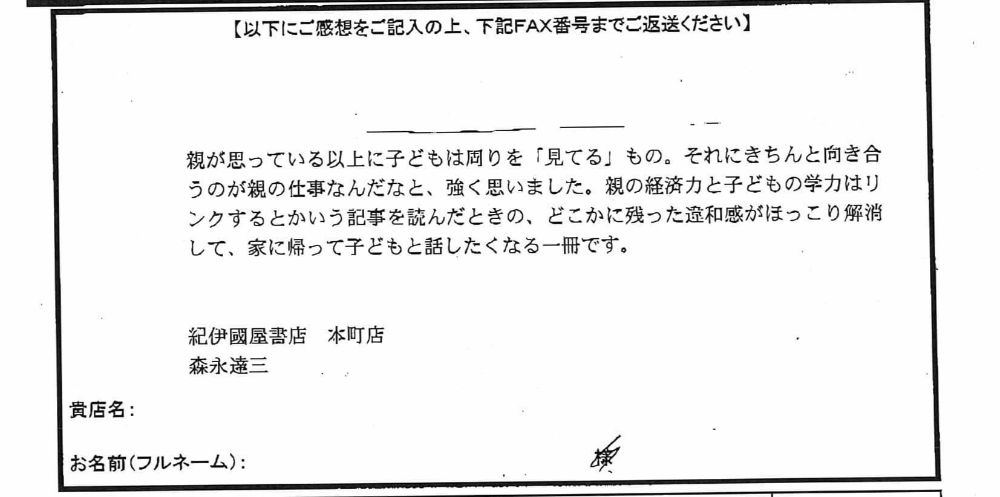 【以下にご感想をご記入の上、下記FAX番号までご返送ください】
親が思っている以上に子どもは周りを「見てる」もの。それにきちんと向き合
うのが親の仕事なんだなと、強く思いました。親の経済力と子どもの学力はリ
ンクするとかいう記事を読んだときの、どこかに残った違和感がほっこり解消
して、家に帰って子どもと話したくなる一冊です。
紀伊國屋書店　本町店
森永達三
貴店名：
お名前（フルネーム）：
様